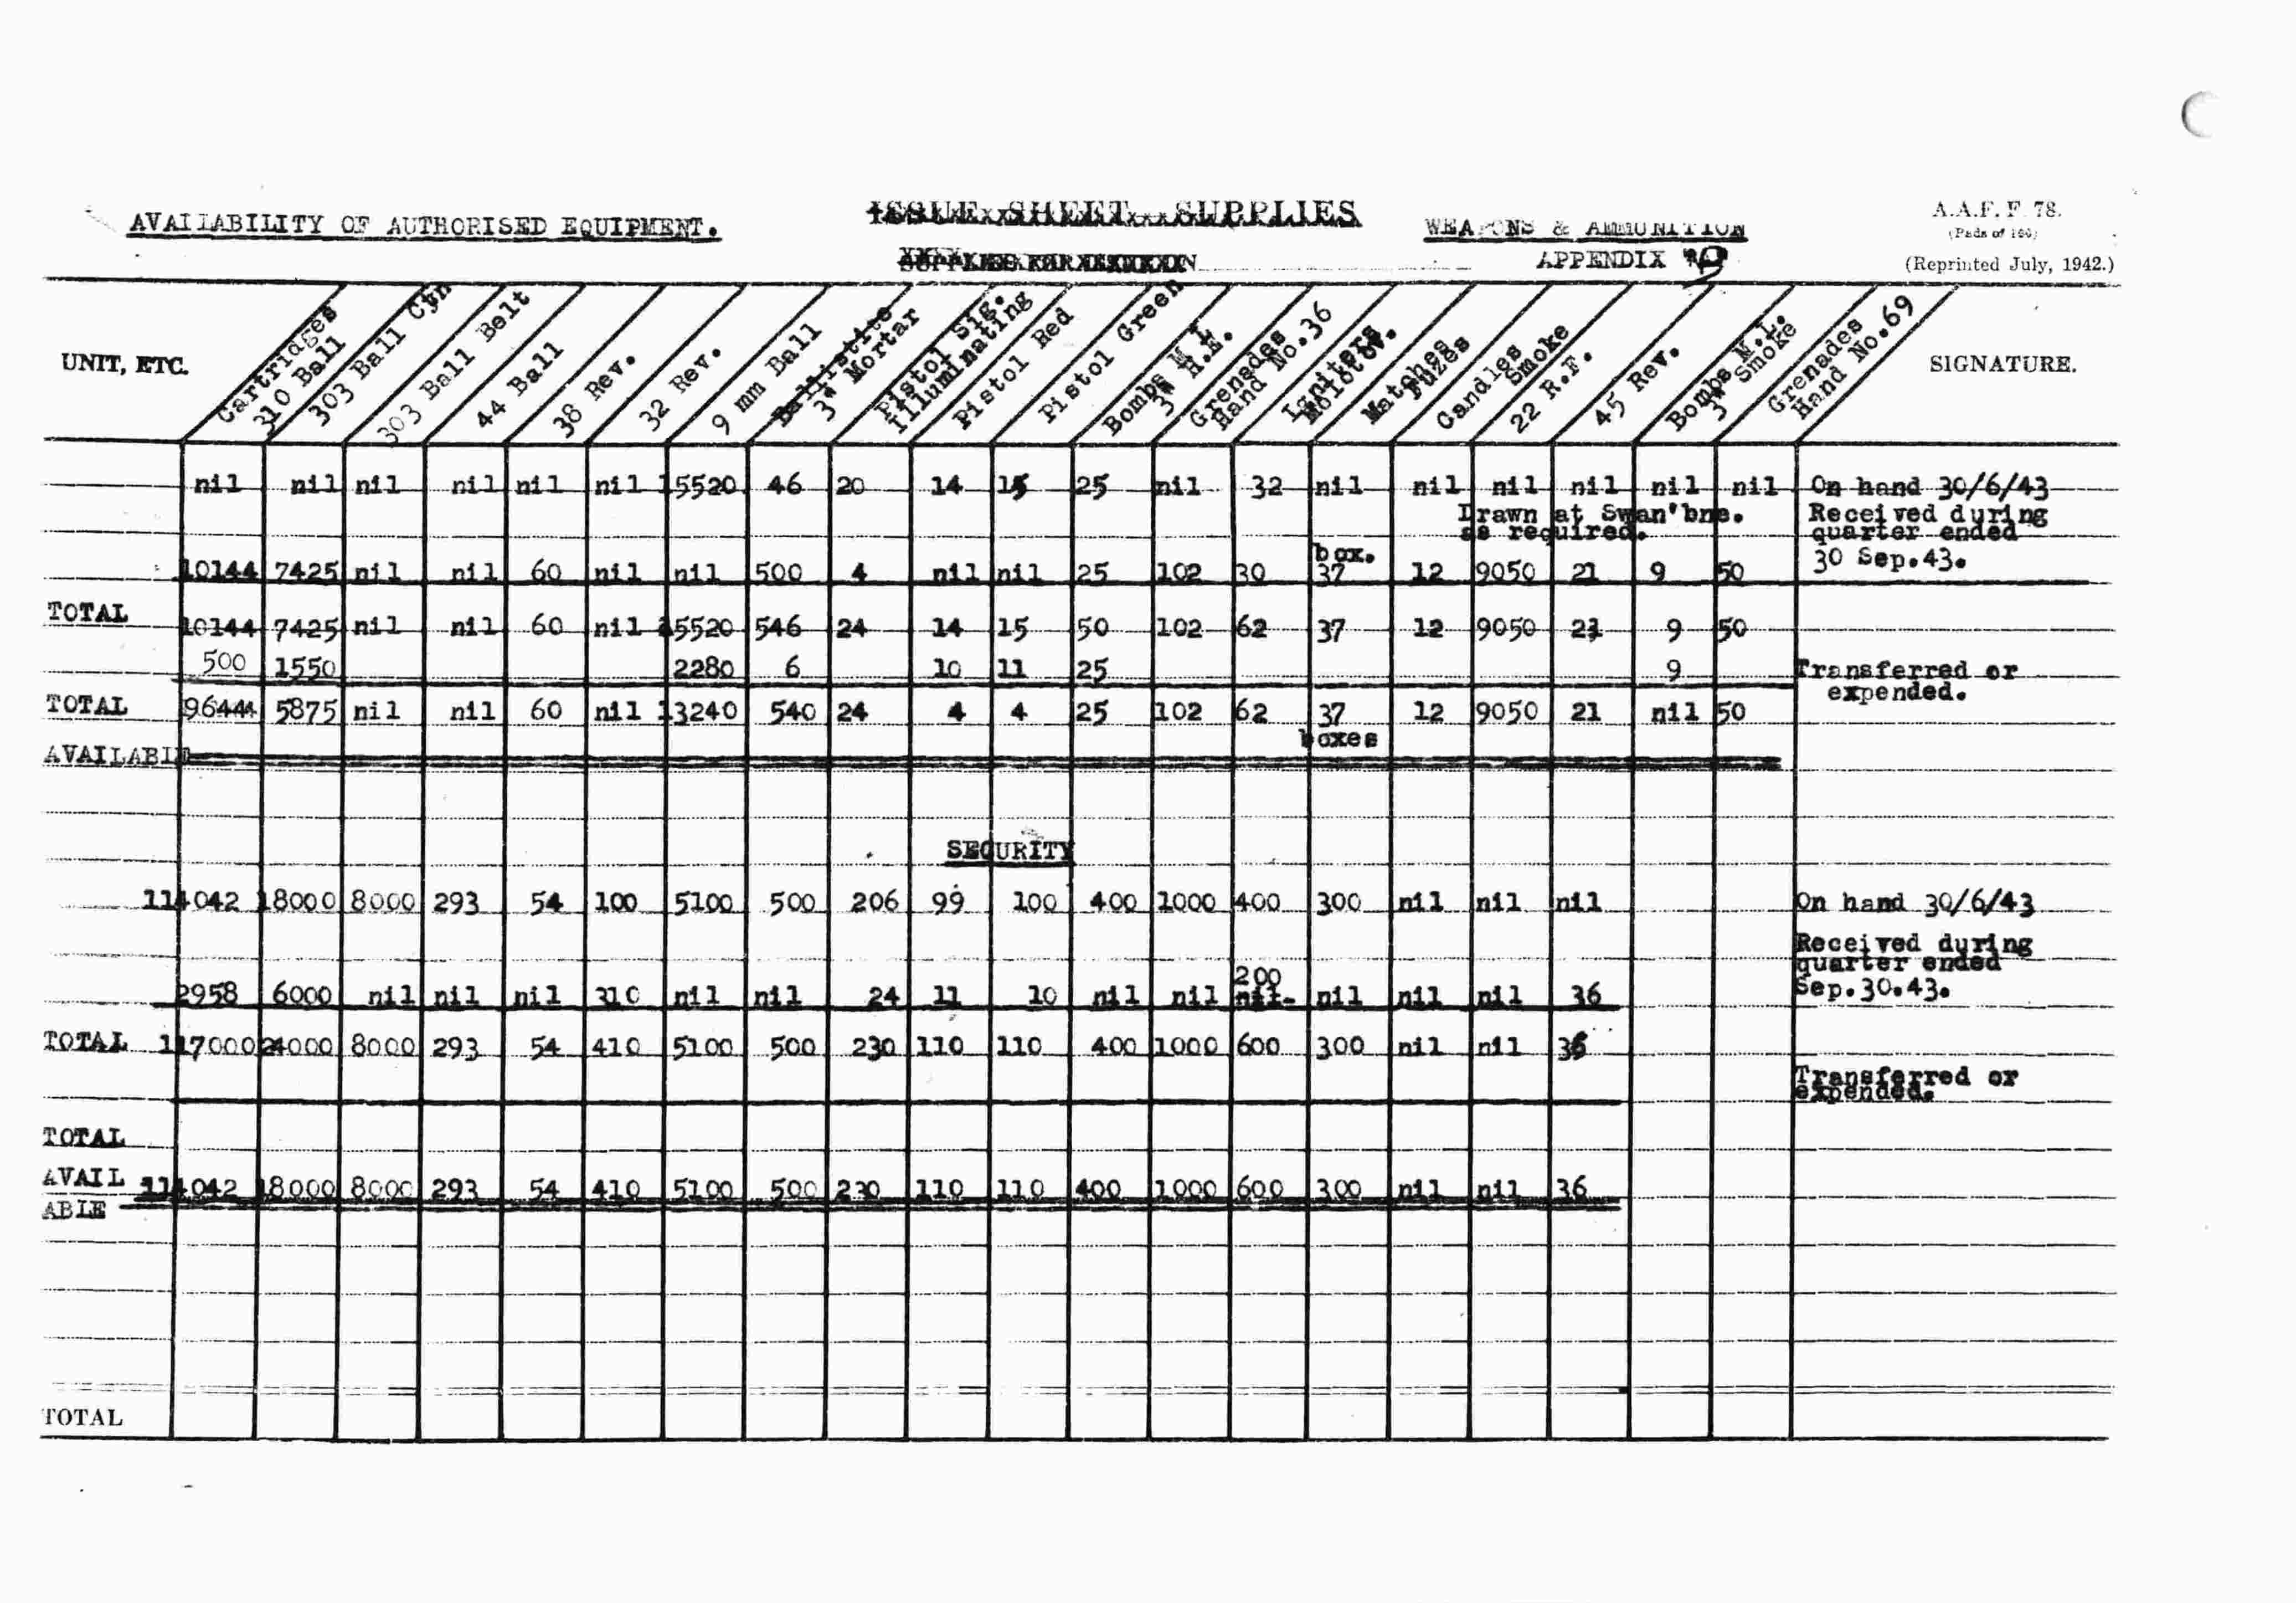 AVAILABILITY OF AUTHORISED EQUIPMENT.
ISSUE SHEET SUPPLIES
WEAPONS & AMMUNITION
APPENDIX
A.A.F. F 78.
(Pads of 100)
(Reprinted July, 1942.)
UNIT, ETC.
Cartridges 310 Ball
303 Ball Ctn
303 Ball Belt
44 Ball
38 Rev.
32 Rev.
9 mm Ball
Ballistite 3" Mortar
Pistol Sig. Illuminating
Pistol Red
Pistol Green
Bombs M L 3" H.E.
Grenades Hand No.36
Ignitors Molotov.
Matches Fuzes
Candles Smoke
22 R.F.
45 Rev.
Bombs M.L. 3" Smoke
Grenades Hand No.69
SIGNATURE.
nil nil nil nil nil nil 15520 46 20 14 15 25 nil 32 nil nil nil nil nil nil On hand 30/6/43
Drawn at Swan'bne. Received during
as required. quarter ended
box. 30 Sep.43.
10144 7425 nil nil 60 nil nil 500 4 nil nil 25 102 30 37 12 9050 21 9 50
TOTAL 10144 7425 nil nil 60 nil 15520 546 24 14 15 50 102 62 37 12 9050 21 9 50
500 1550 2280 6 10 11 25 9 Transferred or
expended.
TOTAL 9644 5875 nil nil 60 nil 13240 540 24 4 4 25 102 62 37 12 9050 21 nil 50
boxes
AVAILABLE
SECURITY
114042 18000 8000 293 54 100 5100 500 206 99 100 400 1000 400 300 nil nil nil On hand 30/6/43
Received during
quarter ended
200
2958 6000 nil nil nil 310 nil nil 24 11 10 nil nil nil nil nil nil 36 Sep.30.43.
TOTAL 117000 24000 8000 293 54 410 5100 500 230 110 110 400 1000 600 300 nil nil 36
Transferred or
expended.
TOTAL
AVAIL 114042 18000 8000 293 54 410 5100 500 230 110 110 400 1000 600 300 nil nil 36
ABLE
TOTAL